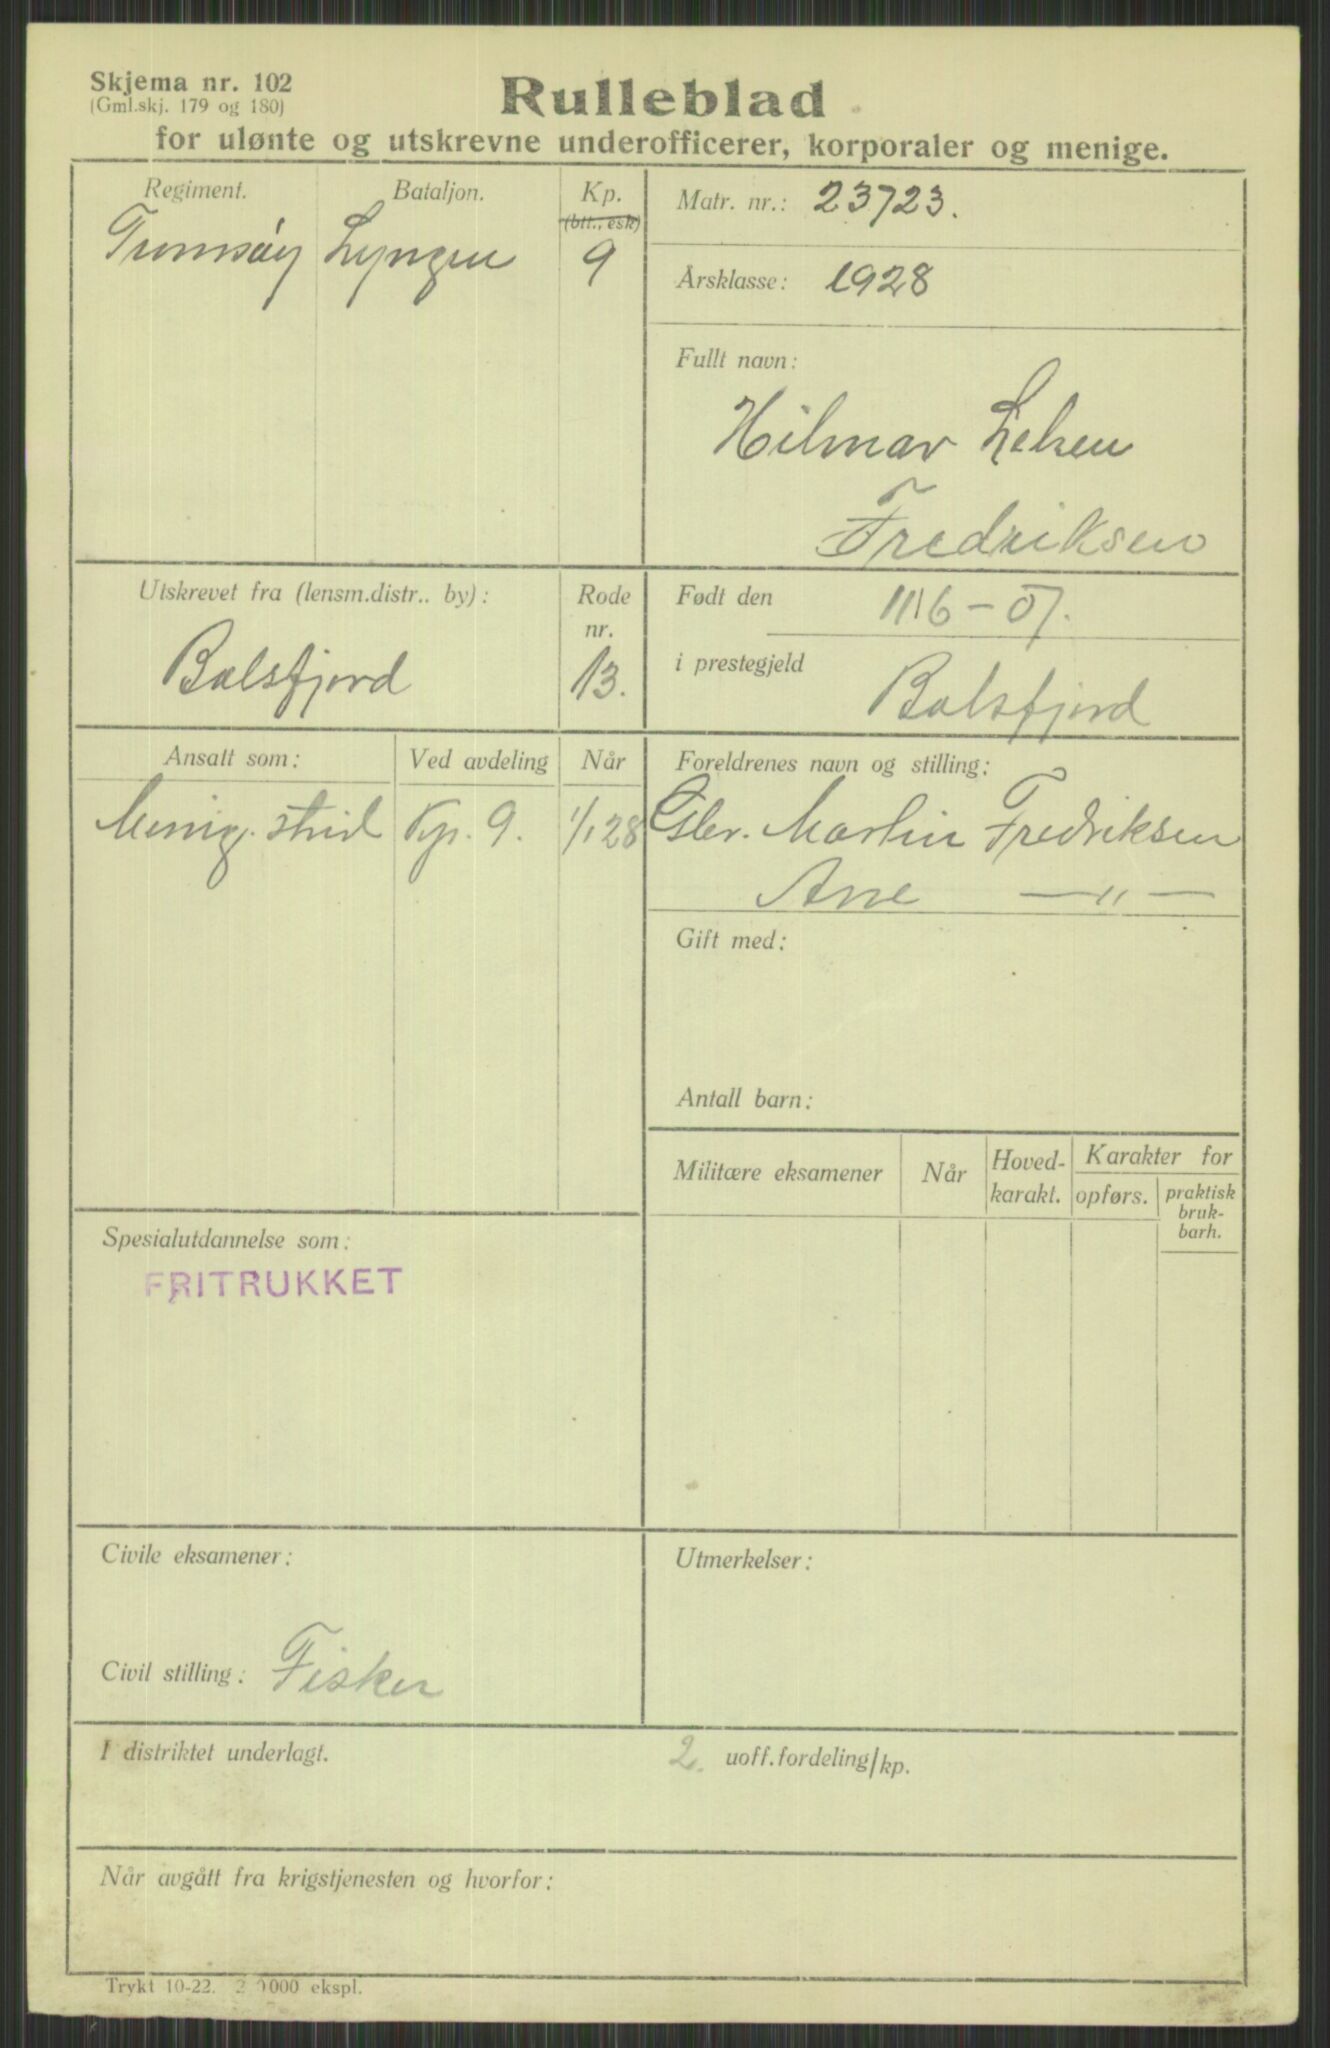 Skjema nr. 102
(Gml.skj. 179 og 180)
Rulleblad
for ulønte og utskrevne underofficerer, korporaler og menige.
Regiment. Bataljon. Kp.
(btt., esk)
Lyngen 9
Matr. nr.: 23723.
Årsklasse: 1928
Fullt navn:
Hilmar
Fredriksen
Utskrevet fra (lensm.distr.. by):
Rode
nr.
Balsfjord 13.
Født den 11/6-07.
i prestegjeld Balsfjord
Ansatt som: Ved avdeling Når
Menig. strid Kp. 9. 1/1 28
Foreldrenes navn og stilling:
Gbr. Martin Fredriksen
Ane —"—
Gift med:
Antall barn:
Militære eksamener Når Hoved-
karakt.
Karakter for
opførs. praktisk
bruk-
barh.
Spesialutdannelse som:
FRITRUKKET
Civile eksamener:
Civil stilling: Fisker
Utmerkelser:
I distriktet underlagt. 2. uoff.fordeling/kp.
Når avgått fra krigstjenesten og hvorfor:
Trykt 10-22. 2 0000 ekspl.